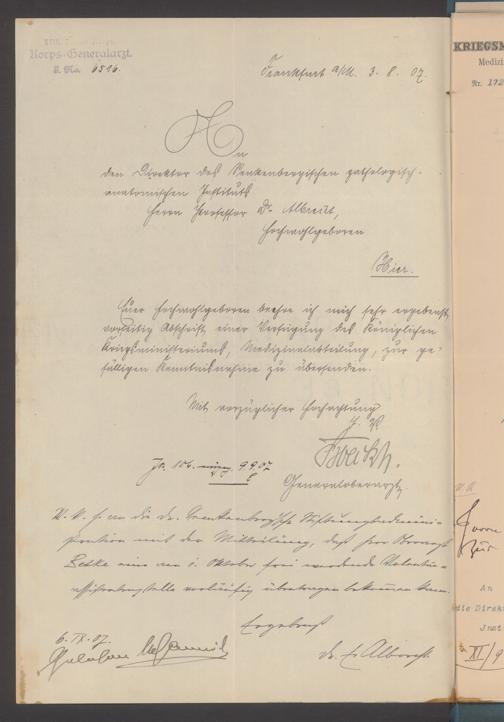 Korps-Generalarzt.
J. No. 6546.
Frankfurt a/M. 3. 8. 07.
An
den Direktor des Senkenbergischen pathologisch-
anatomischen Instituts
Herrn Professor Dr. Albrecht,
Hochwohlgeboren
Hier.
Euer Hochwohlgeboren beehre ich mich sehr ergebenst
Abschrift einer Verfügung des Königlichen
Kriegsministeriums, Medizinalabteilung, zur ge-
fälligen Kenntnisnahme zu übersenden.
Mit vorzüglicher Hochachtung
Generaloberarzt.
9.9.07
an die Dr. Senkenbergische Stiftungsadmini-
stration mit der Mitteilung, daß Herr
am 1. Oktober frei werdende
vorläufig übertragen bekommen kann.
Ergebenst
6. IX. 07.
Dr. E. Albrecht
KRIEGSM
Medizi
Nr. 172
Herrn
An
die Direk
Inst
XI/9